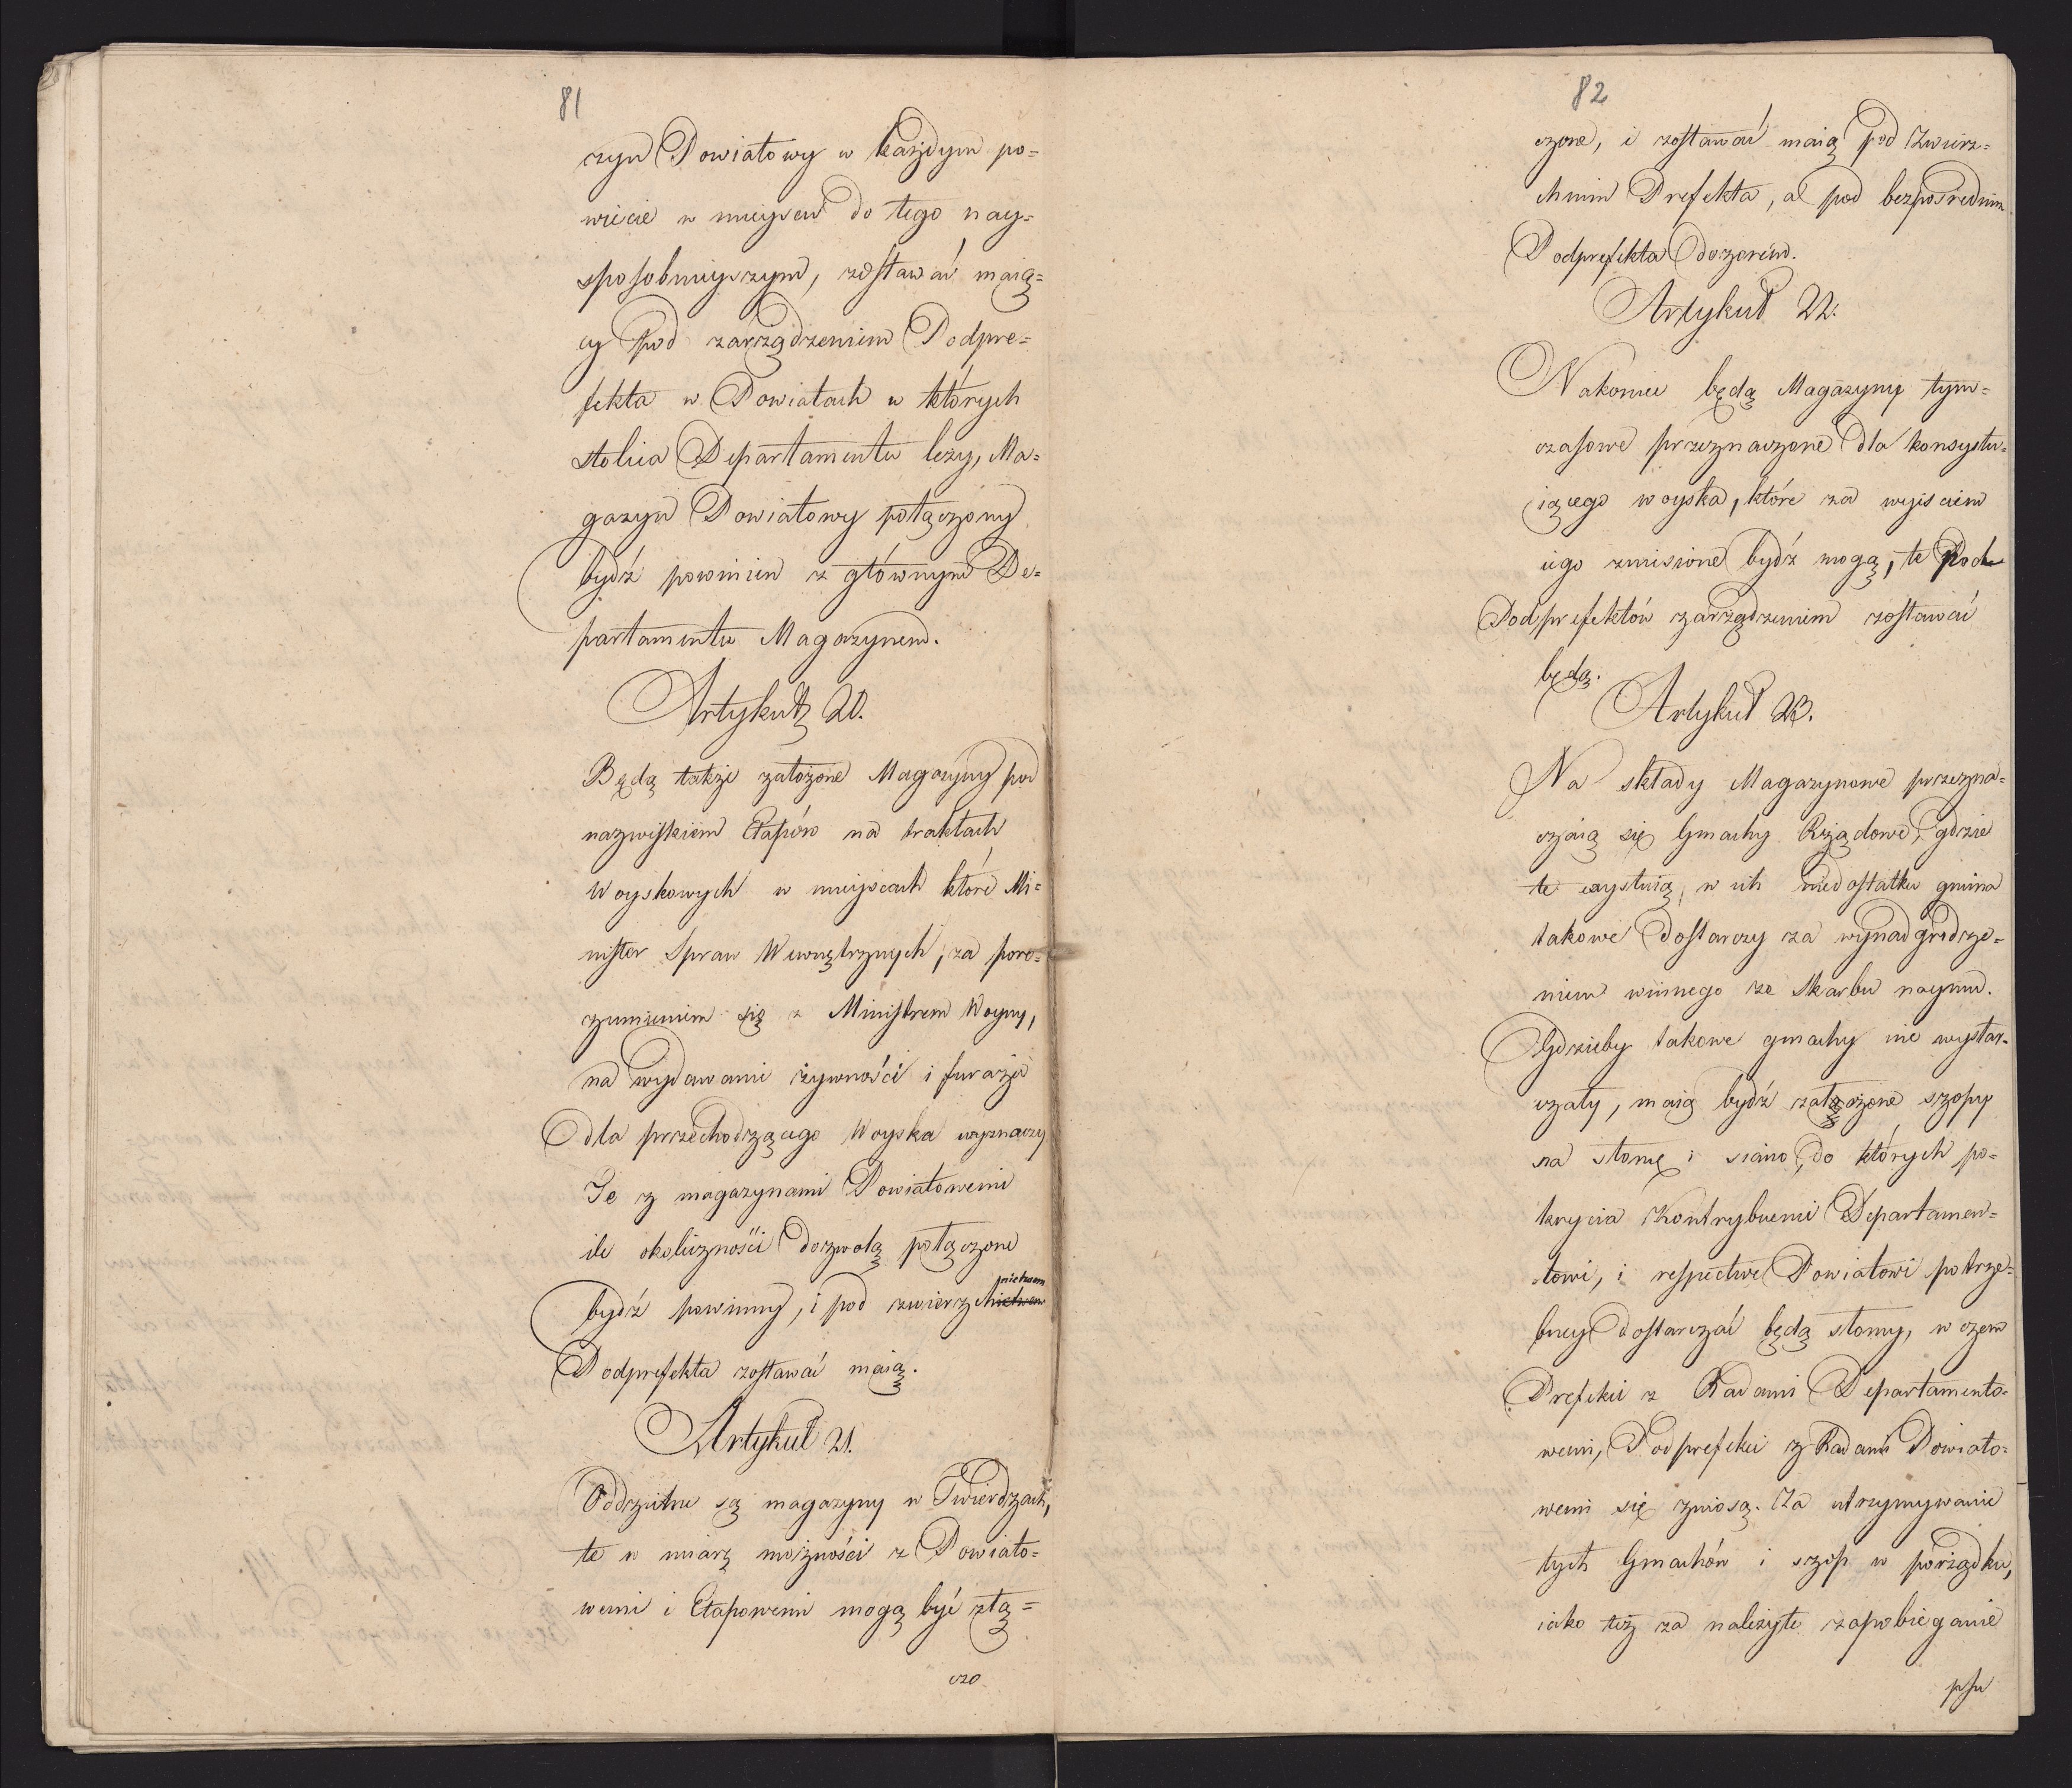 81
czyn Powiatowy w każdym po=
wiecie w mieyscu do tego nay=
sposobnieyszym, zostawać maią=
cy pod zarządzeniem Podpre=
fekta w Powiatach w których
stolica Departamentu leży, Ma=
gazyn Powiatowy połączony
bydź powinien z głównym De=
partamentu Magazynem.
Artykuł 20.
Będą także założone Magazyny pod
nazwiskiem Etapów na traktach
Woyskowych w mieyscach które Mi=
nister Spraw Wewnętrznych, za poro=
zumieniem się z Ministrem Woyny,
na wydawanie żywności i furażu
dla przechodzącego Woyska wyznaczy
Te z magazynami Powiatowemi
ile okoliczności dozwolą połączone
bydź powinny, i pod zwierzchnictwem
nictwem
Podprefekta zostawać maią.
Artykuł 21.
Oddzielne są magazyny w Twierdzach,
te w miarę możności z Powiato=
wemi i Etapowemi mogą być złą=
czo
82
czone, i zostawać maią pod Zwierz=
chnim Prefekta, a pod bezpośrednim
Podprefekta dozorem.
Artykuł 22.
Nakoniec będą Magazyny tym=
czasowe przeznaczone dla konsystu=
iącego woyska, które za wyisciem
iego zniesione bydź mogą, te Pod
Podprefektów zarządzeniem zostawać
będą.
Artykuł 23.
Na składy Magazynowe przezna=
czaią się Gmachy Rządowe, gdzie
te exystuią, w ich niedostatku gmina
takowe dostarczy za wynadgrodze=
niem winnego ze Skarbu naymu.
Gdzieby takowe gmachy nie wystar=
czały, maią bydź założone szopy
na słomę i siano, do których po=
krycia Kontrybuenci Departamen=
towi, i respective Powiatowi potrze=
bney dostarczać będą słomy, w czem
Prefekci z Radami Departamento=
wemi, Podprefekci z Radami Powiato=
wemi się zniosą. Za utrzymywanie
tych Gmachów i szop w porządku,
iako też za należyte zapobieganie
psu